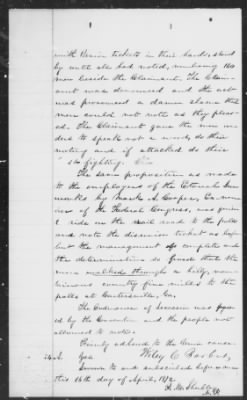 with Union tickets in their hands, stood
by until all had voted, numbering 160
men beside the Claimant. The Claim-
ant was denounced and the act
was pronounced a damn shame that
men could not vote as they pleas-
ed. The Claimant gave the men or-
ders to speak not a word, do their
voting and if attacked do their
fighting.
The same proposition was made
to the employees of the Etowah Iron
works by Mark A. Cooper, Ex-mem-
ber of the Federal Congress,
ride on the rail road to the polls
and vote the disunion ticket as before
but the management so complete and
the determination so fierce that the
men walked through a hilly,
country five miles to the
polls at Cartersville, Ga.
The Ordinance of Secession was pass-
ed by the Convention and the people not
allowed to vote.
Firmly adhered to the Union cause.
Yea.
Wiley C. Barber,
Sworn to and subscribed before me
this 16th day of April, 1872